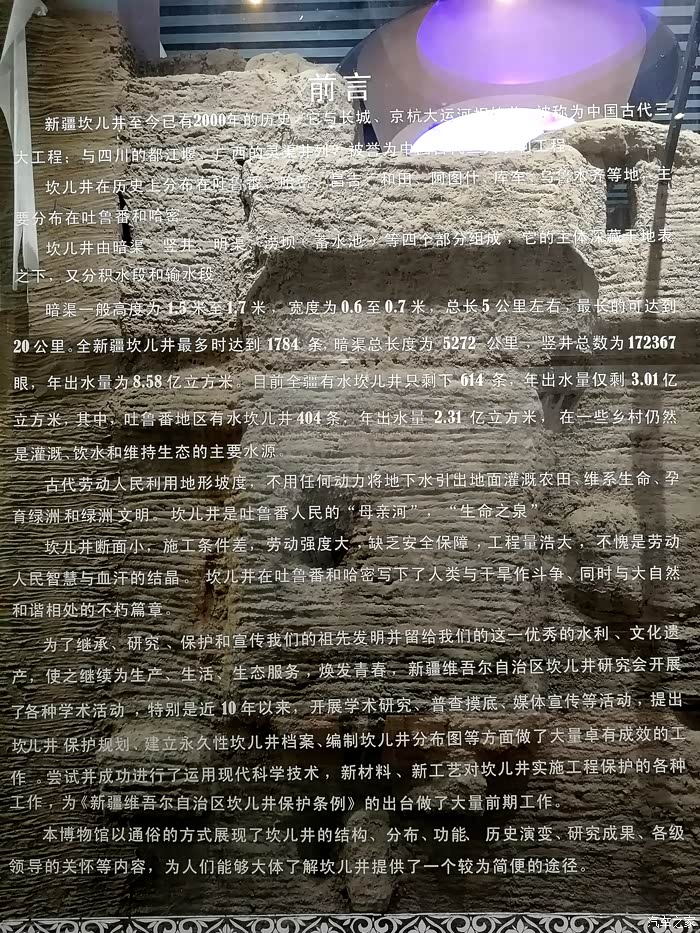 前言
新疆坎儿井至今已有2000年的历史，它与长城、京杭大运河 被称为中国古代三
大工程；与四川的都江堰、广西的灵渠并列，被誉为中 工程。
坎儿井在历史上分布在吐鲁番、哈密、 和田、阿图什、库车、乌鲁木齐等地，主
要分布在吐鲁番和哈密。
坎儿井由暗渠、竖井、明渠、涝坝（蓄水池）等四个部分组成，它的主体深藏于地表
之下，又分积水段和输水段。
暗渠一般高度为1.5米至1.7米，宽度为0.6至0.7米，总长5公里左右，最长的可达到
20公里。全新疆坎儿井最多时达到1784条，暗渠总长度为5272公里，竖井总数为172367
眼，年出水量为8.58亿立方米。目前全疆有水坎儿井只剩下614条，年出水量仅剩3.01亿
立方米，其中，吐鲁番地区有水坎儿井404条，年出水量2.31亿立方米，在一些乡村仍然
是灌溉、饮水和维持生态的主要水源。
古代劳动人民利用地形坡度，不用任何动力将地下水引出地面灌溉农田、维系生命、孕
育绿洲和绿洲文明。坎儿井是吐鲁番人民的“母亲河”，“生命之泉”
坎儿井断面小，施工条件差，劳动强度大，缺乏安全保障，工程量浩大，不愧是劳动
人民智慧与血汗的结晶。坎儿井在吐鲁番和哈密写下了人类与干旱作斗争、同时与大自然
和谐相处的不朽篇章。
为了继承、研究、保护和宣传我们的祖先发明并留给我们的这一优秀的水利、文化遗
产，使之继续为生产、生活、生态服务，焕发青春，新疆维吾尔自治区坎儿井研究会开展
了各种学术活动，特别是近10年以来，开展学术研究、普查摸底、媒体宣传等活动，提出
坎儿井保护规划、建立永久性坎儿井档案、编制坎儿井分布图等方面做了大量卓有成效的工
作。尝试并成功进行了运用现代科学技术，新材料、新工艺对坎儿井实施工程保护的各种
工作，为《新疆维吾尔自治区坎儿井保护条例》的出台做了大量前期工作。
本博物馆以通俗的方式展现了坎儿井的结构、分布、功能、历史演变、研究成果、各级
领导的关怀等内容，为人们能够大体了解坎儿井提供了一个较为简便的途径。
汽车之家